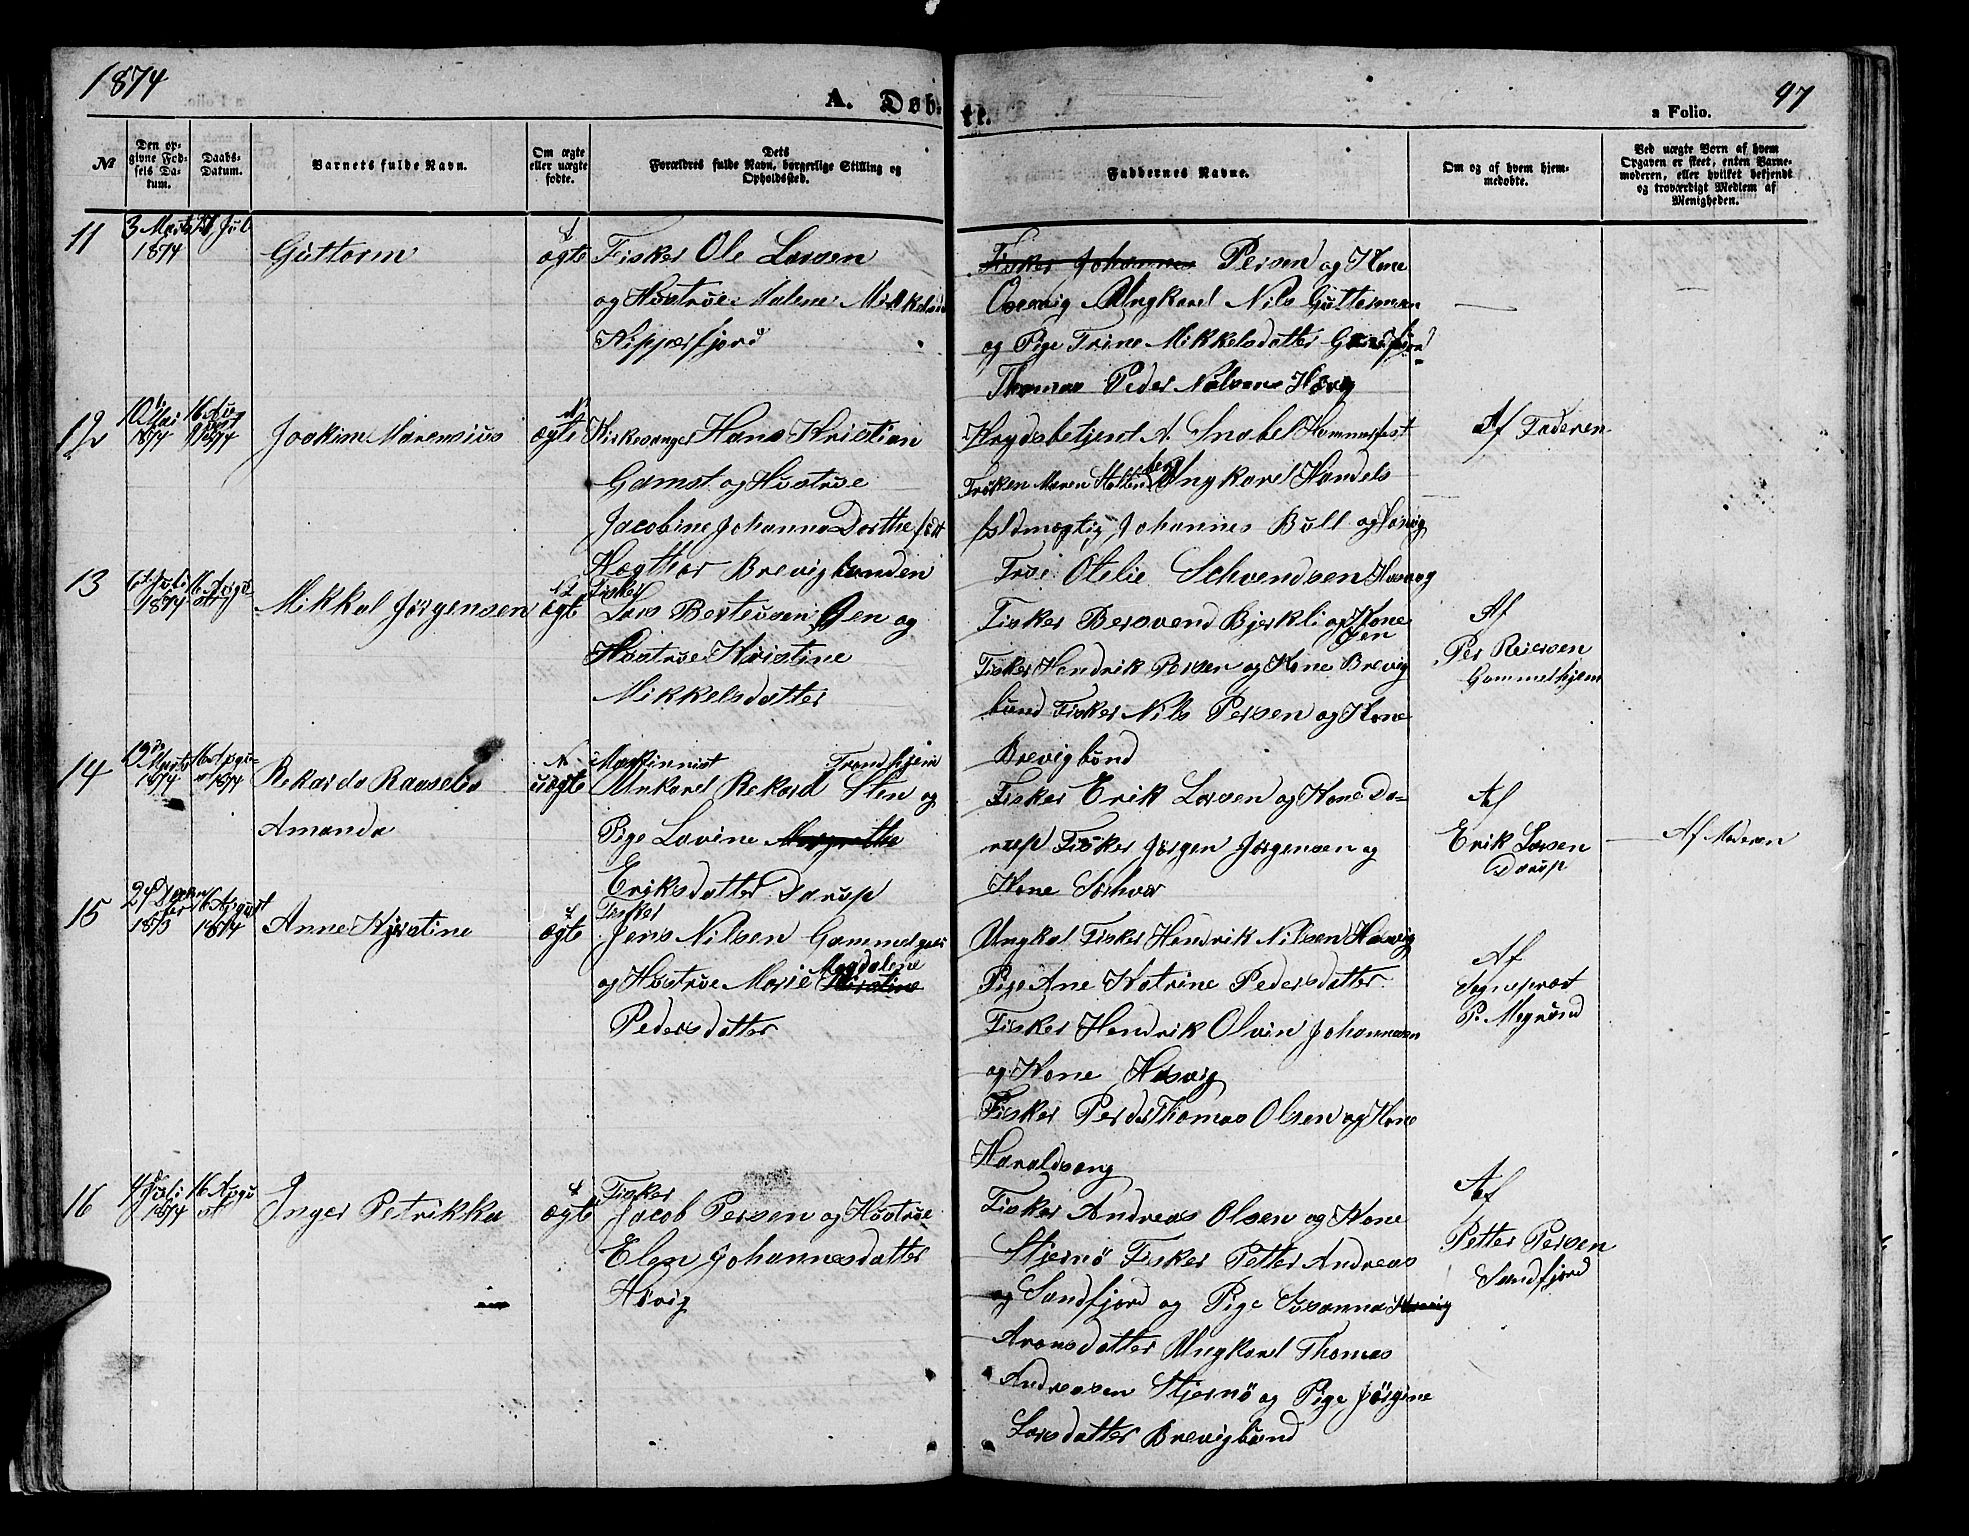 1874
97
A. Døb-
te.
a Folio.
№
Den op-
givne Fød-
sels Da-
tum.
Daabs-
Datum.
Barnets fulde Navn.
Om ægte
eller uægte
fødte.
Dets
Forældres fulde Navn, borgerlige Stilling og
Opholdssted.
Faddernes Navne.
Om og af hvem hjem-
medøbte.
Ved uægte Børn af hvem
Opgaven er skeet, enten Barne-
moderen, eller hvilket bekjendt
og troværdigt Medlem af
Menigheden.
11
3 Marts
1874
Juli
Guttorm
ægte
Fisker Ole Larsen
og Hustrue Malene
Fisker Johannes Persen og Kone
Ungkarl Nils Guttorman
og Pige Trine Mikkelsdatter
Thomas Peder Nilsens Hasvig
12
10 Mai
1874
16 Aug
1874
Joakim Marensius
ægte
Kirkesanger Hans Kristian
Gamst og Hustrue
Jacobine Johanna Dorthe født
Hægthor Brevigbunden
Krydsbetjent A. Snabel Hammerfest
Frøken Maren Ungkarl Handels
fuldmægtig Johannes Bull og Hasvig
Frue Otelie Schvendsen Hasvog
Af Faderen
13
6 Juli
1874
16 Augu-
st
Mikkal Jørgensen
ægte
Fisker
Lars Berteusen Øen og
Hustrue Kristine
Mikkelsdatter
Fisker Bersvend Bjerkli og Kone
Øen
Fisker Hendrik Persen og Kone Brevig
bund Fisker Nils Persen og Kone
Brevigbund
Af
Per Reiersen
Gammelhjem
14
13 Marts
1874
16 Augu-
st 1874
Rekarda Raaselia
Amanda
uægte
Maskinnist Trondhjem
Unkarl Rekard Sten og
Pige Lovine Margrethe
Eriksdatter Darup
Fisker Erik Larsen og Kone Da-
rup Fisker Jørgen Jørgensen og
Kone Sørhver
Af
Erik Larsen
Darup
Af Moderen
15
24 Decem
ber
1873
16 August
1874
Anne Kjrstine
ægte
Fisker
Jens Nilsen
og Hustrue Marie Magdalene
Kirstine
Pedersdatter
Ungkal Fisker Hendrik Nilsen Hasvig
Pige Ane Katrine Pedersdatter
Fisker Hendrik Olvin Johannesen
og Kone Hasvig
Fisker Peder Thomas Olsen og Kone
Haraldseng
Af
Sogneprest
P. Mogrund
16
4 Juli
1874
16 Augu
st
Inger Petrikka
ægte
Fisker
Jacob Persen og Hustrue
Elen Johannesdatter
Hasvig
Fisker Andreas Olsen og Kone
Stjernö Fisker Petter Andreas
og Sandfjord og Pige Susanna
Aronsdatter Ungkarl Thomas
Andreasen Stjernö og Pige Jörgine
Larsdatter Brevigbund
Af
Petter Persen
Sandfjord